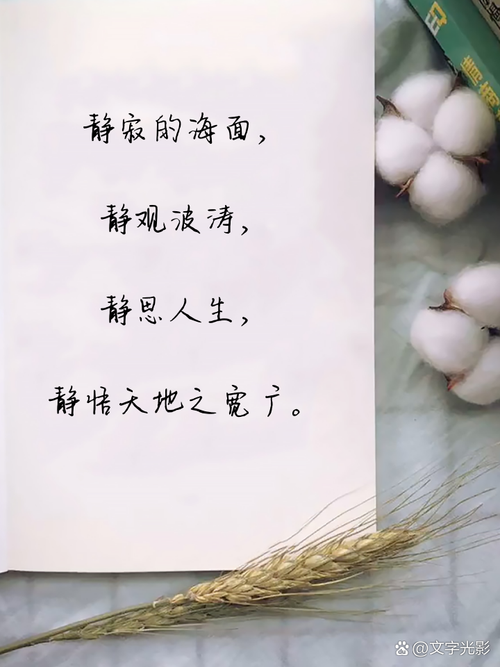 静寂的海面，
静观波涛，
静思人生，
静悟天地之宽广。
@文字光影